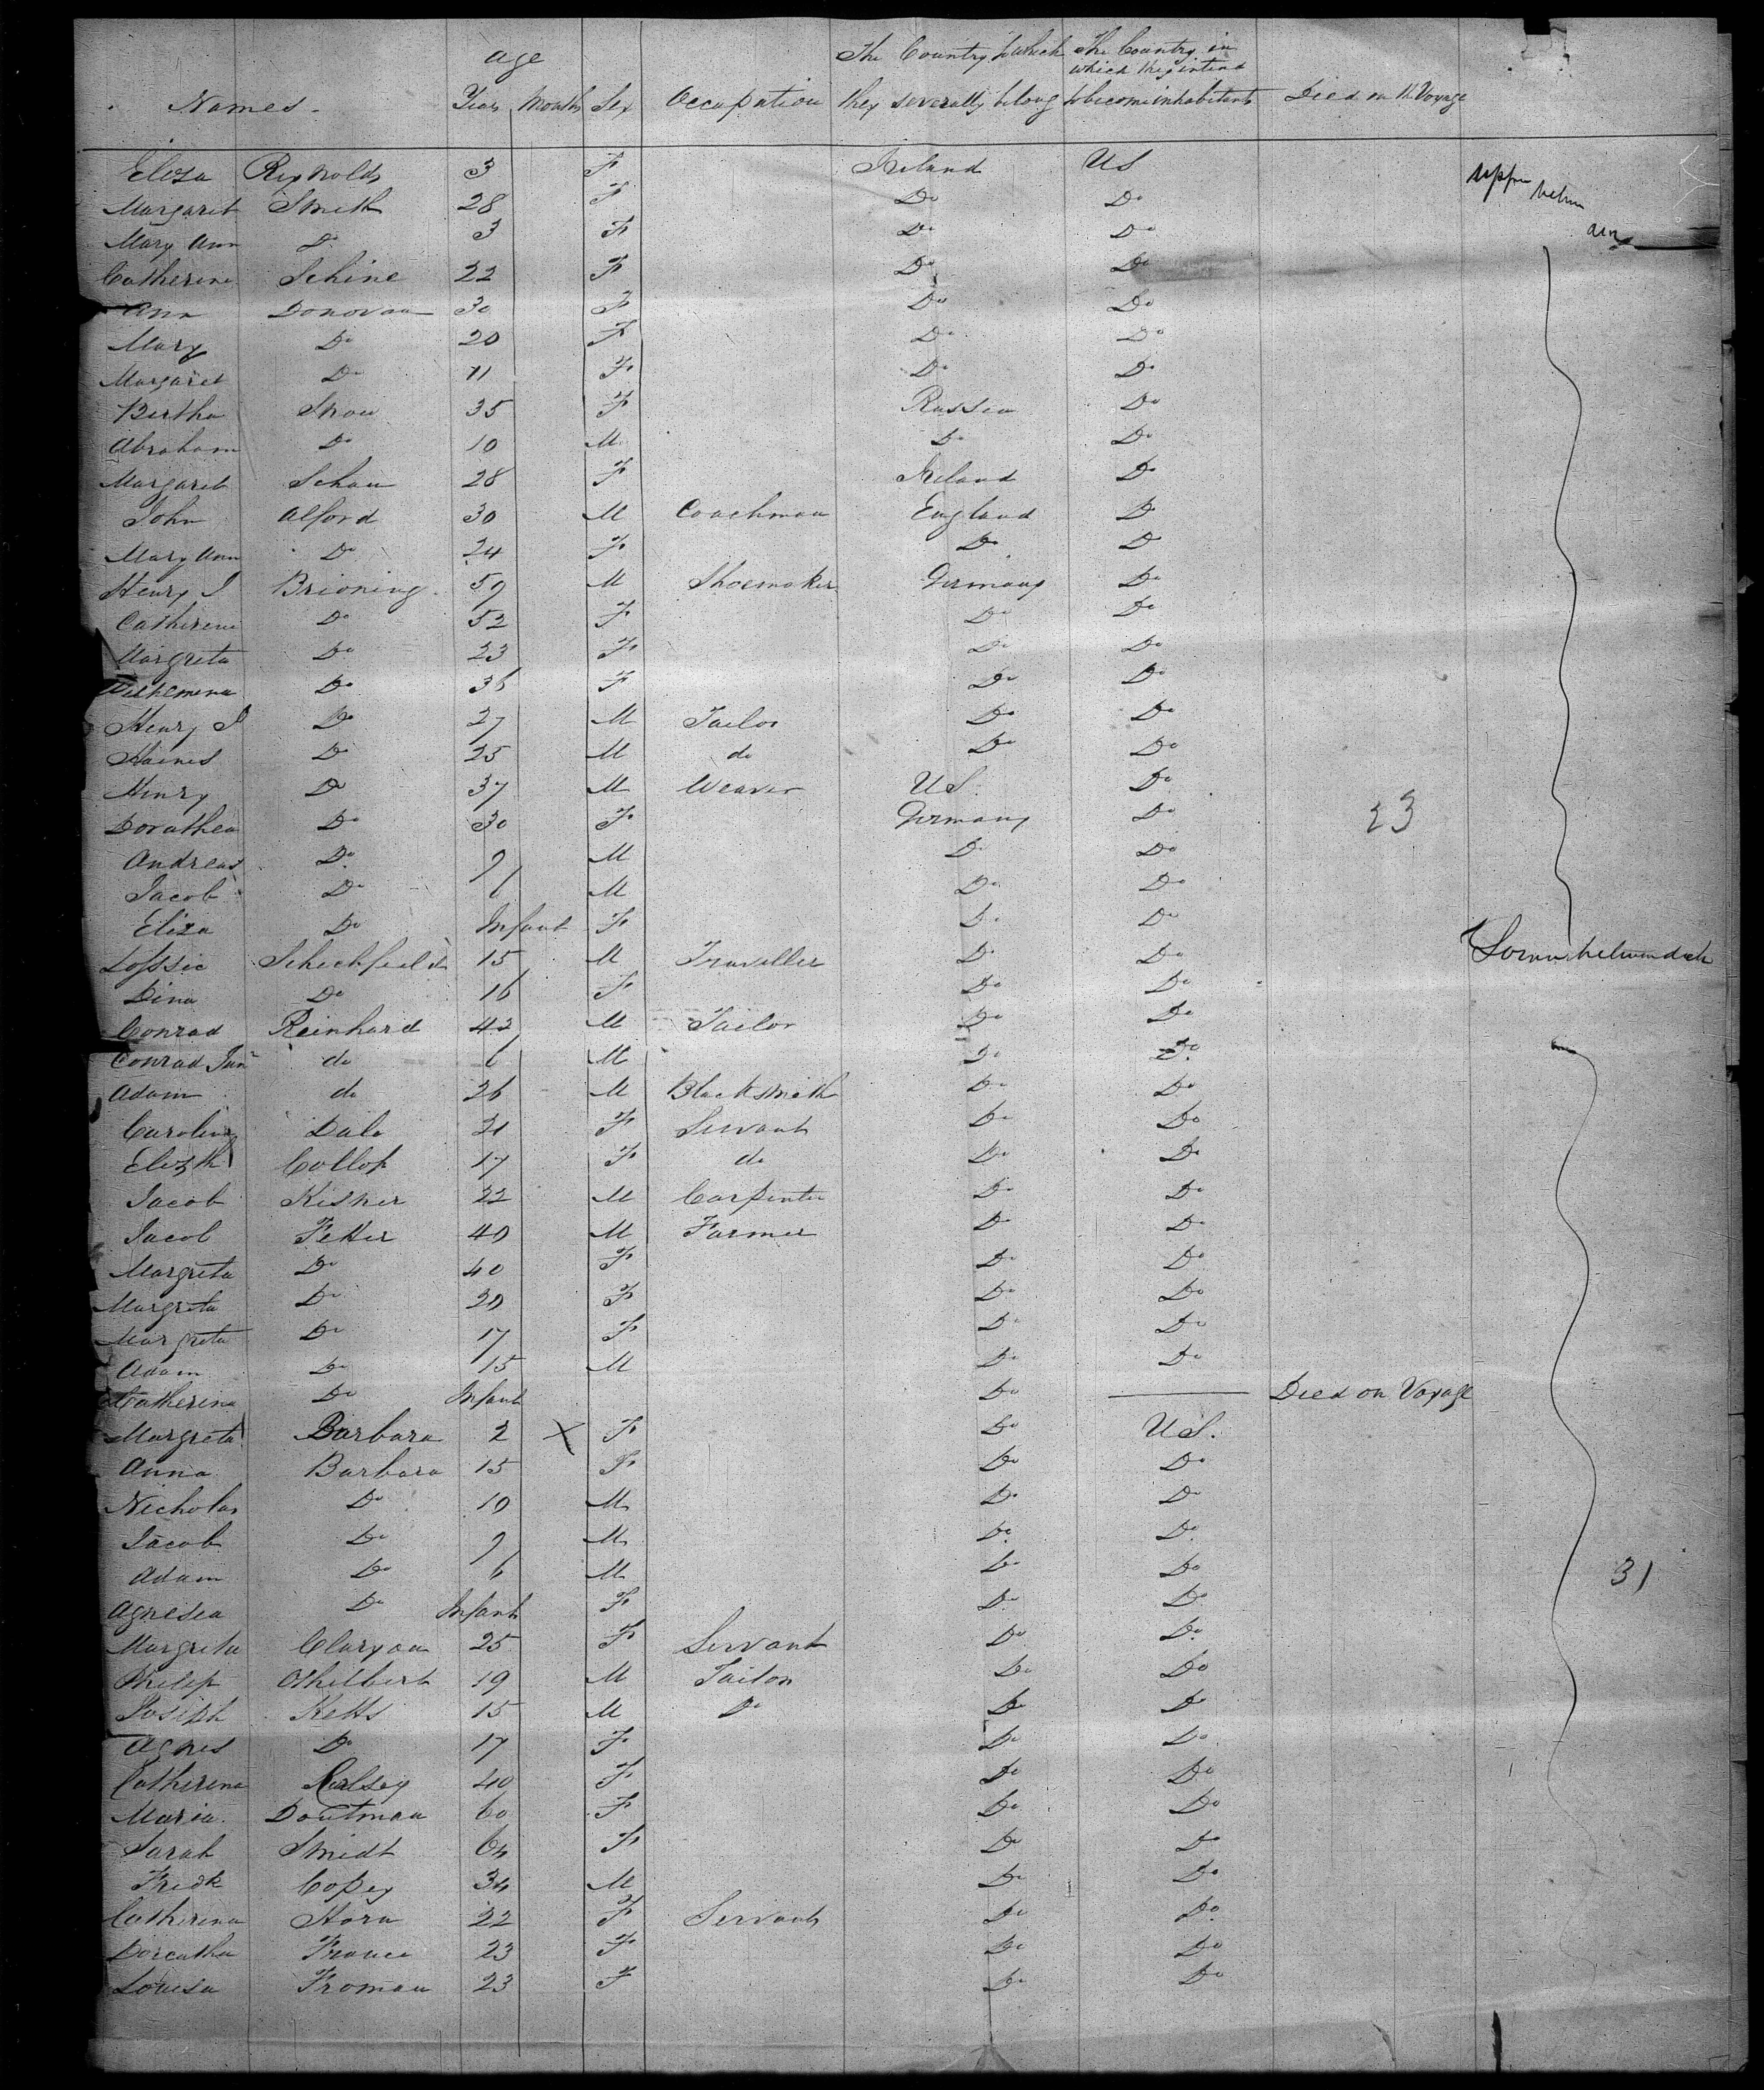 age
The Country to which The Country in
which they intend
Names Years Months Sex Occupation they severally belong to become inhabitants Died on the Voyage
Eliza Reynolds 3 F Ireland US
Upper
Margaret Smith 28 F Do Do
Mary Ann Do 3 F Do Do
Catherine Schine 22 F Do Do
Ann Donovan 30 F Do Do
Mary Do 20 F Do Do
Margaret Do 11 F Do Do
Bertha Snow 35 F Russia Do
Abraham Do 10 M Do Do
Margaret Schau 28 F Ireland Do
John Alford 30 M Coachman England Do
Mary Ann Do 24 F Do Do
Henry J Brioning 59 M Shoemaker Germany Do
Catherine Do 52 F Do Do
Margreta Do 23 F Do Do
Do 36 F Do Do
Henry J Do 27 M Tailor Do Do
Haines Do 25 M do Do Do
Henry Do 37 M Weaver US. Do
Dorathea Do 30 F Germany Do 23
Andreas Do 9 M Do Do
Jacob Do 6 M Do Do
Eliza Do Infant F Do Do
15 M Traveller Do Do
Dina Do 16 F Do Do
Conrad Reinhard 42 M Tailor Do Do
Conrad Jun do 6 M Do Do
Adam do 26 M Blacksmith Do Do
Caroline Dale 21 F Servant Do Do
Elizth Collop 17 F do Do Do
Jacob Kisner 22 M Carpenter Do Do
Jacob Fetter 40 M Farmer Do Do
Margreta Do 40 F Do Do
Margreta Do 20 F Do Do
Margreta Do 17 F Do Do
Adam Do 15 M Do Do
Catherina Do Infant Do Died on Voyage
Margreta Barbara 2 X F Do US.
Anna Barbara 15 F Do Do
Nicholas Do 10 M Do Do
Jacob Do 9 M Do Do
Adam Do 6 M Do Do 31
Agnesea Do Infant F Do Do
Margreta Claryou 25 F Servant Do Do
Philip Othilbert 19 M Tailor Do Do
Joseph Ketts 15 M Do Do Do
Agnes Do 17 F Do Do
Catherina 40 F Do Do
Maria Doutman 60 F Do Do
Sarah Smidt 64 F Do Do
Fredk Copey 34 M Do Do
Catherina Horn 22 F Servant Do Do
Dorcatha France 23 F Do Do
Louisa Froman 23 F Do Do